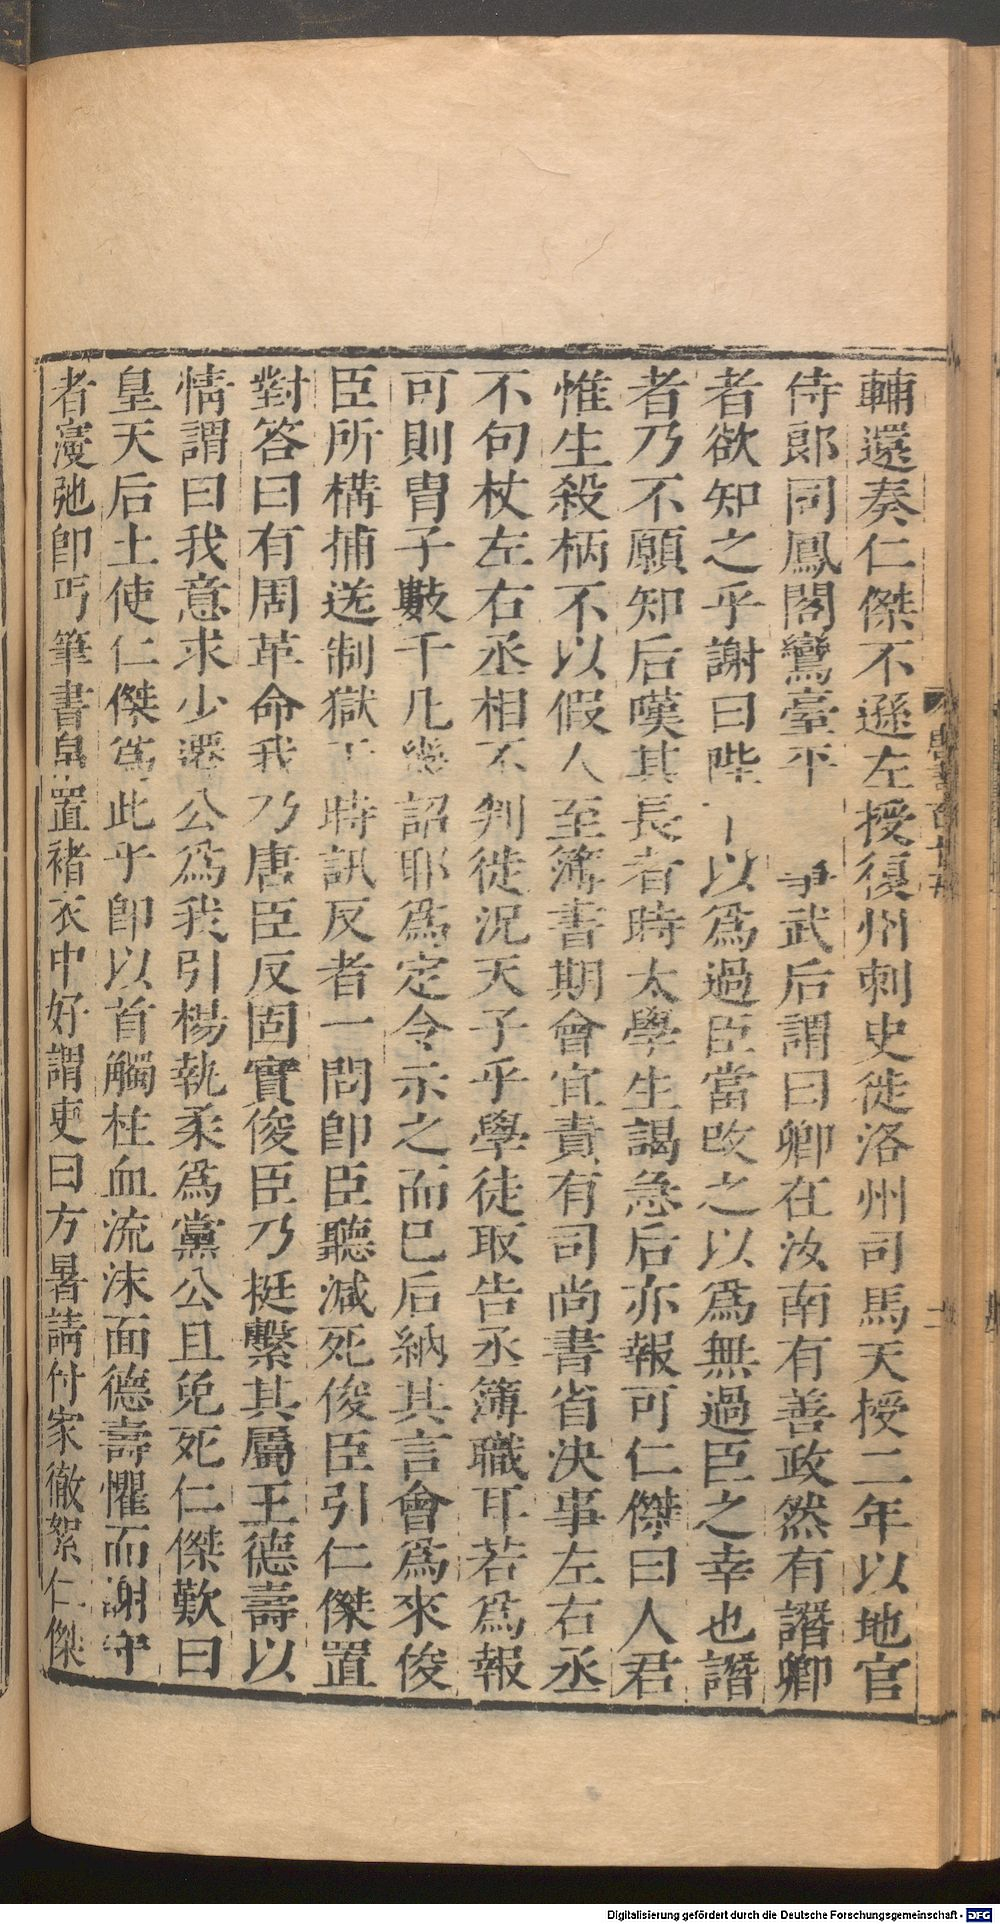 輔還奏仁傑不遜左授復州刺史徙洛州司馬天授二年以地官
侍郎同鳳閣鸞臺平 事武后謂曰卿在汝南有善政然有譖卿
者欲知之乎謝曰陛 以為過臣當改之以為無過臣之幸也譖
者乃不願知后嘆其長者時太學生謁急后亦報可仁傑曰人君
惟生殺柄不以假人至簿書期會宜責有司尚書省決事左右丞
不句杖左右丞相不判徒況天子乎學徒取告丞簿職耳若為報
可則冑子數千凡幾詔耶為定令示之而已后納其言會為來俊
臣所構捕送制獄于時訊反者一問即臣聽減死俊臣引仁傑置
對答曰有周革命我乃唐臣反固實俊臣乃挺繫其屬王德壽以
情謂曰我意求少遷公為我引楊執柔為黨公且免死仁傑歎曰
皇天后土使仁傑為此乎即以首觸柱血流沫面德壽懼而謝守
者寖弛即丐筆書帛置褚衣中好謂吏曰方暑請付家徹絮仁傑
Digitalisierung gefördert durch die Deutsche Forschungsgemeinschaft - DFG